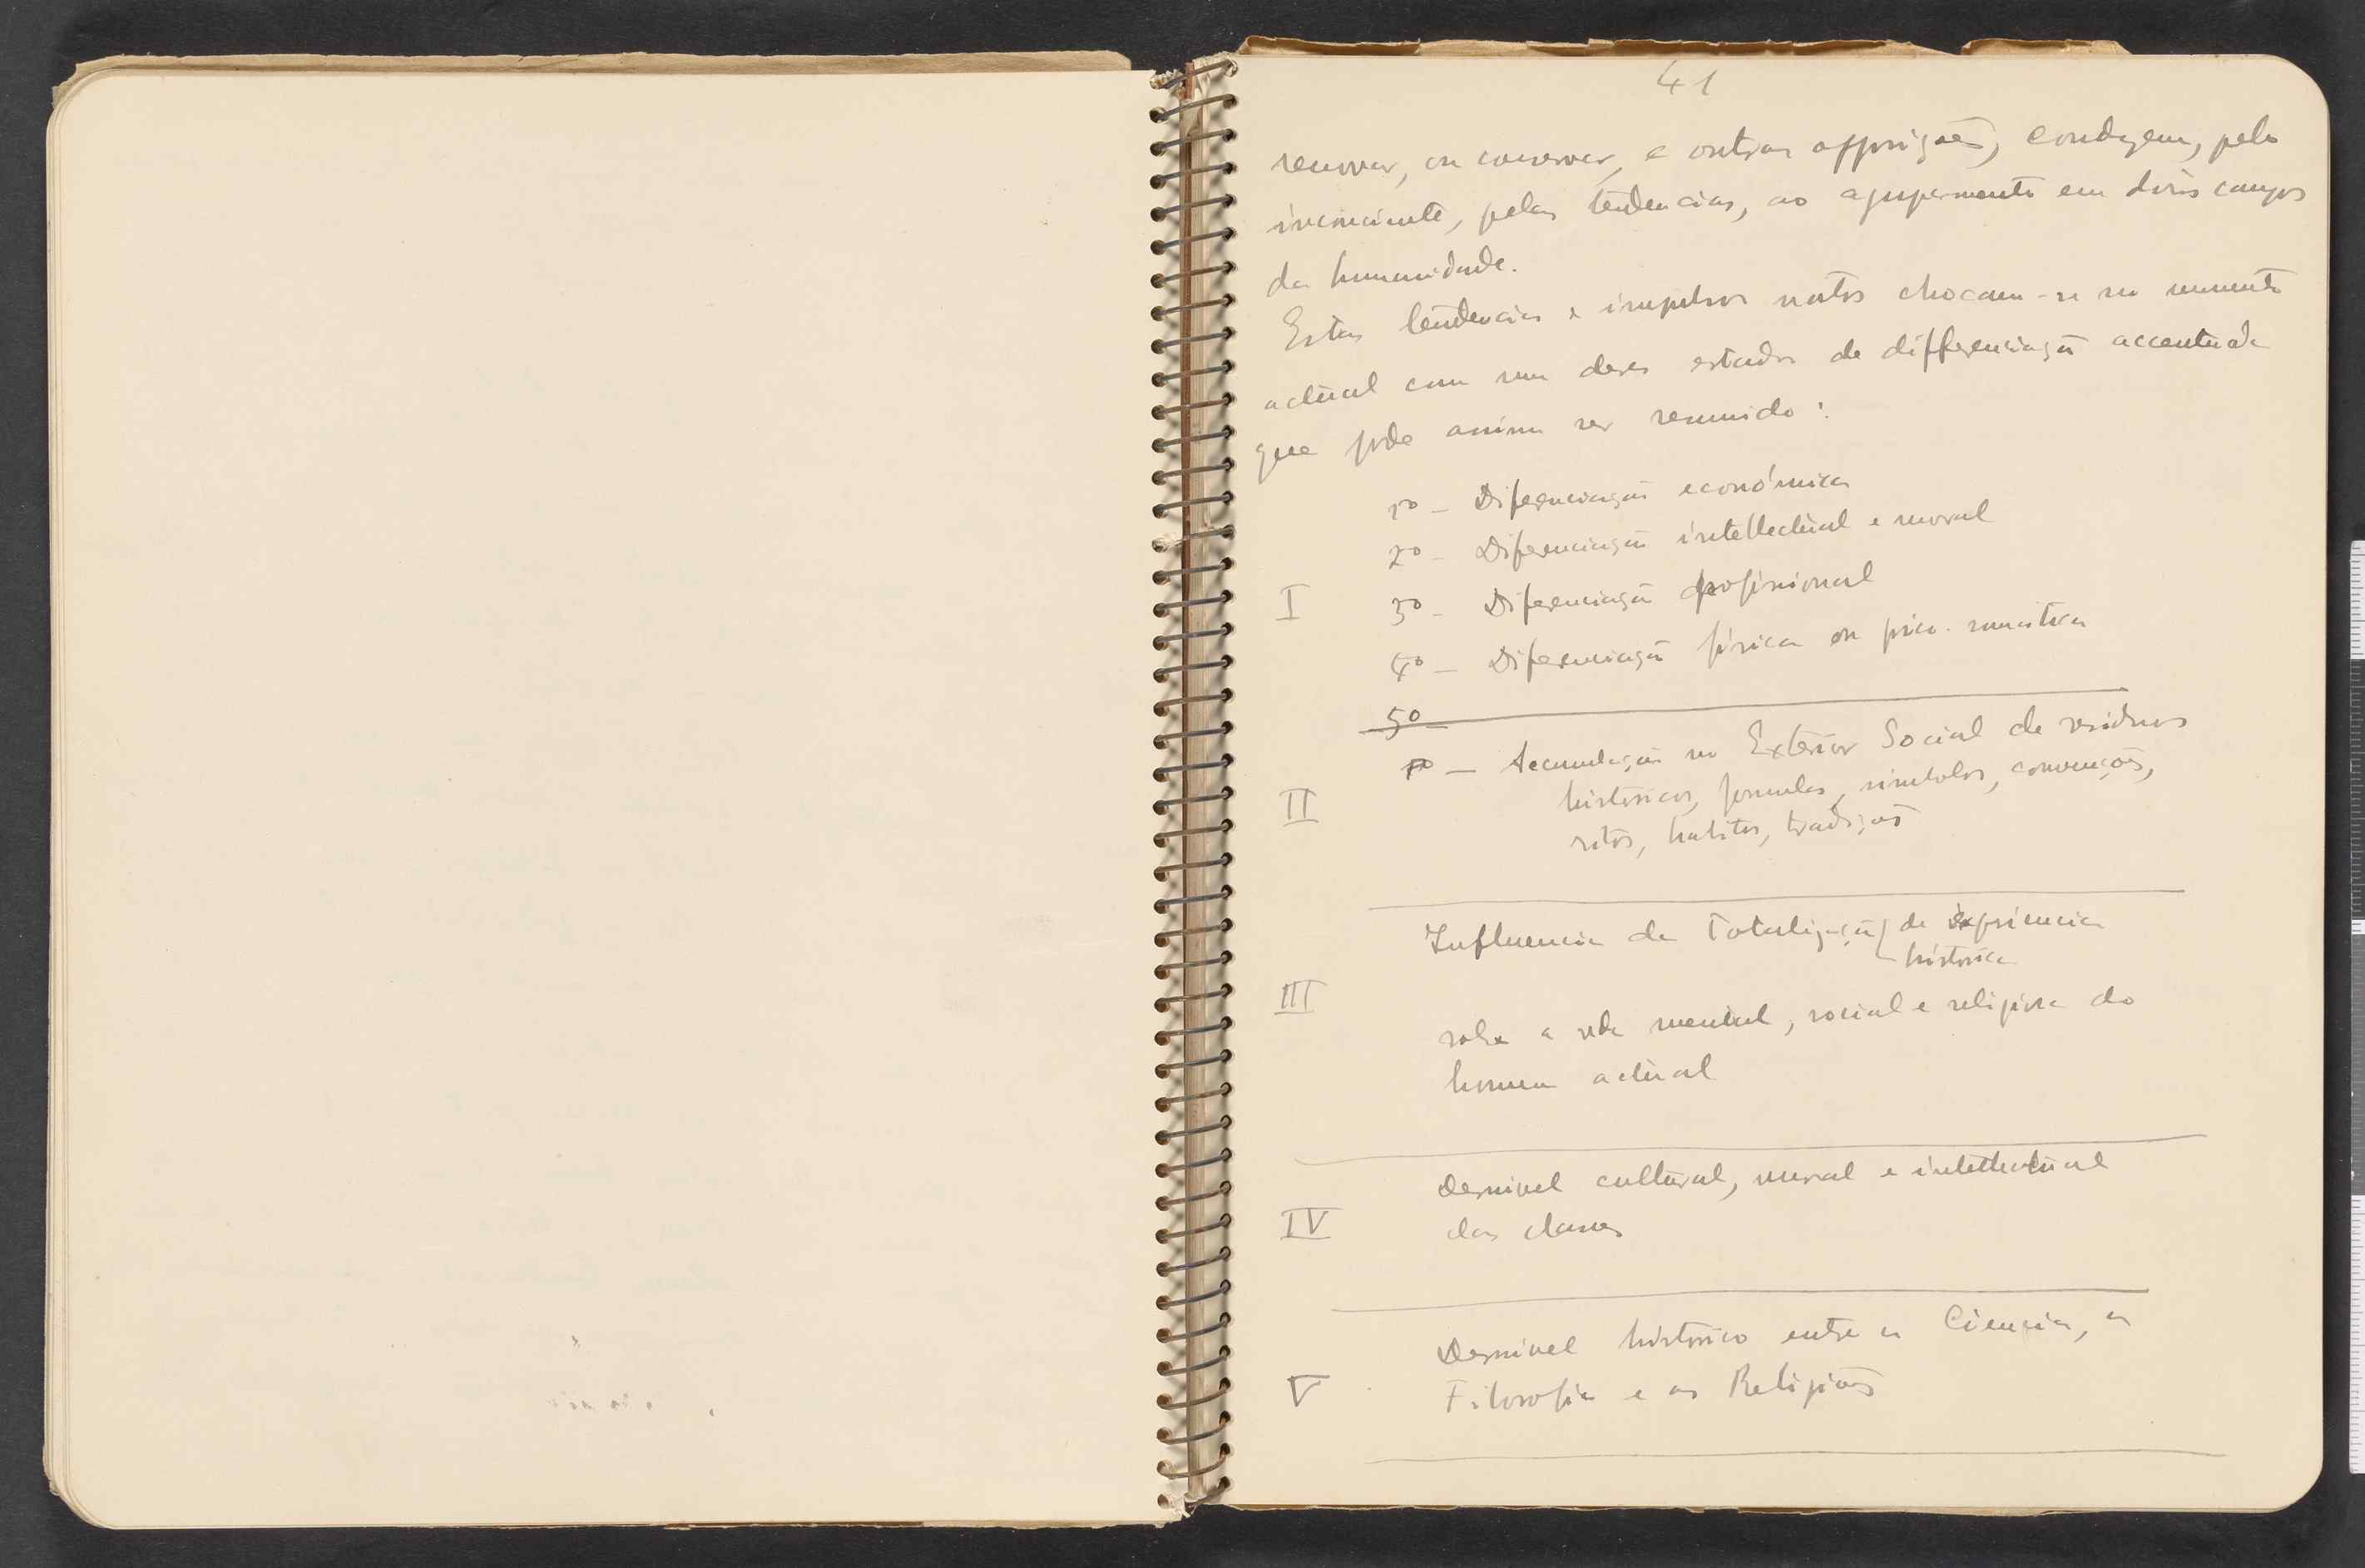 41
renovar, ou conservar, e outras opposições, conduzem, pelo
inconciente, pelas tendencias, ao agrupamento em dois campos
da humanidade.
Estas tendencias e impulsos natos chocam-se no momento
actual com um desses estados de differenciação accentuada
que pode assim ser resumido:
1º - Diferenciação económica
2º - Diferenciação intellectual e moral
I 3º - Diferenciação profissional
4º - Diferenciação física ou psico-somatica
5º -
1º - Accumulação no Exterior Social de residuos
II historicos, formulas, simbolos, convenções,
ritos, habitos, tradições
Influencia da Totalização de experiencia
historica
III
sobre a vida mental, social e religiosa do
homem actual
Desnivel cultural, moral e intellectual
IV das classes
Desnivel historico entre a Ciencia, a
V Filosofia e as Religiões